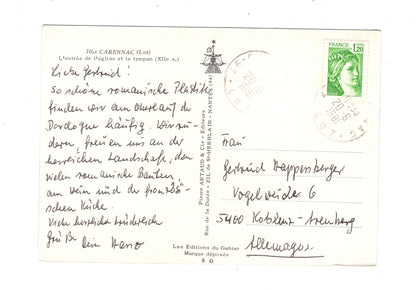 10.- CARENNAC (Lot)
L'entrée de l'église et le tympan (XIIe s.)
Liebe Gertrud!
So schöne romanische Plastik
finden wir am Oberlauf der
Dordogne häufig. Wir
freuen uns an der
herrlichen Landschaft, den
vielen romanischen Bauten,
am Wein und der französi-
schen Küche.
Viele herzliche
Grüße Dein
Pierre ARTAUD & Cie - Editeurs
Rue de la Dutée - ZIL de - NANTES
Les Editions du Gabier
Marque déposée
S O
FRANCE
1,20
20-6
LOT
Frau
Gertrud
Vogelweide 6
5400 Koblenz-Arenberg
Allemagne